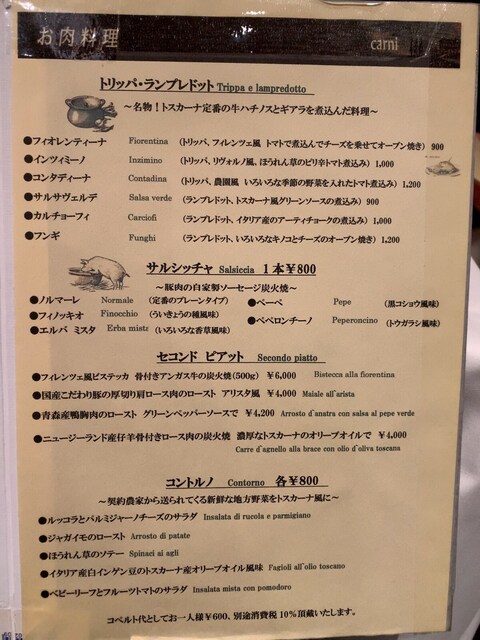 お肉料理 carni
トリッパ・ランプレドット Trippa e lampredotto
～名物！トスカーナ定番の牛ハチノスとギアラを煮込んだ料理～
●フィオレンティーナ Fiorentina (トリッパ、フィレンツェ風 トマトで煮込んでチーズを乗せてオーブン焼き) 900
●インツィミーノ Inzimino (トリッパ、リヴォルノ風、ほうれん草のピリ辛トマト煮込み) 1,000
●コンタディーナ Contadina (トリッパ、農園風 いろいろな季節の野菜を入れたトマト煮込み) 1,200
●サルサヴェルデ Salsa verde (ランプレドット、トスカーナ風グリーンソースの煮込み) 900
●カルチョーフィ Carciofi (ランプレドット、イタリア産のアーティチョークの煮込み) 1,000
●フンギ Funghi (ランプレドット、いろいろなキノコとチーズのオーブン焼き) 1,200
サルシッチャ Salsiccia 1本￥800
～豚肉の自家製ソーセージ炭火焼～
●ノルマーレ Normale (定番のプレーンタイプ) ●ペーペ Pepe (黒コショウ風味)
●フィノッキオ Finocchio (ういきょうの種風味) ●ペペロンチーノ Peperoncino (トウガラシ風味)
●エルバ ミスタ Erba mista (いろいろな香草風味)
セコンド ピアット Secondo piatto
●フィレンツェ風ビステッカ 骨付きアンガス牛の炭火焼(500g) ￥6,000 Bistecca alla fiorentina
●国産こだわり豚の厚切り肩ロース肉のロースト アリスタ風 ￥4,000 Maiale all'arista
●青森産鴨胸肉のロースト グリーンペッパーソースで ￥4,200 Arrosto d'anatra con salsa al pepe verde
●ニュージーランド産仔羊骨付きロース肉の炭火焼 濃厚なトスカーナのオリーブオイルで ￥4,000
Carre d'agnello alla brace con olio d'oliva toscana
コントルノ Contorno 各￥800
～契約農家から送られてくる新鮮な地方野菜をトスカーナ風に～
●ルッコラとパルミジャーノチーズのサラダ Insalata di rucola e parmigiano
●ジャガイモのロースト Arrosto di patate
●ほうれん草のソテー Spinaci ai agli
●イタリア産白インゲン豆のトスカーナ産オリーブオイル風味 Fagioli all'olio toscano
●ベビーリーフとフルーツトマトのサラダ Insalata mista con pomodoro
コペルト代としてお一人様￥600、別途消費税10%頂戴いたします。